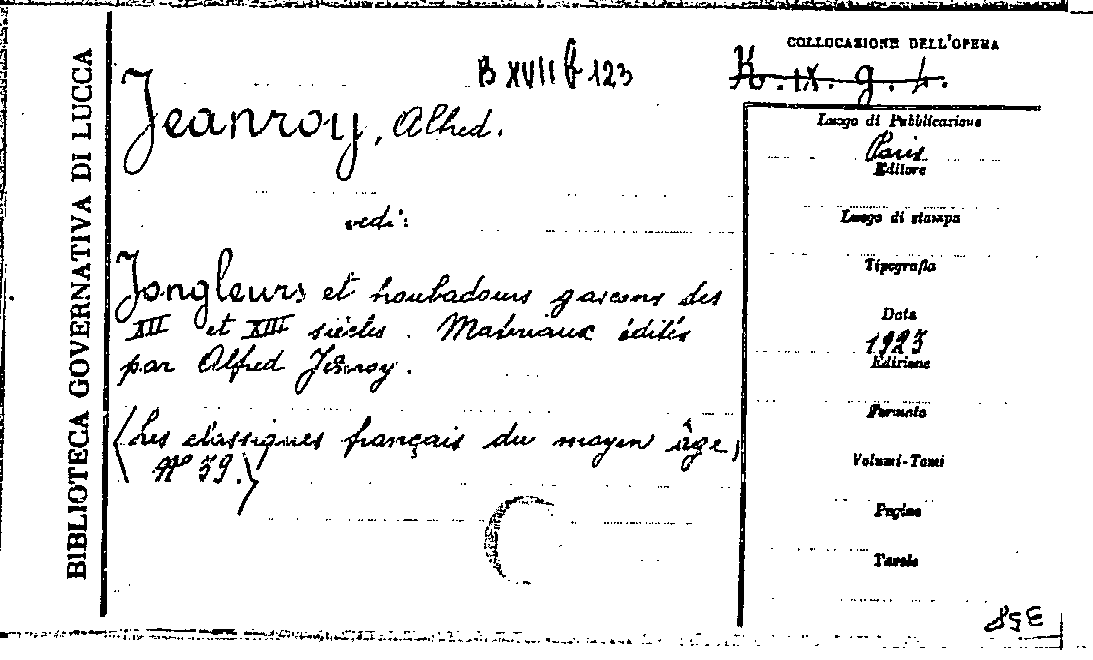 BIBLIOTECA GOVERNATIVA DI LUCCA
B XVII f 123
COLLOCAZIONE DELL'OPERA
K. IX. g. 4.
Jeanroy, Alfred.
vedi:
Jongleurs et troubadours gascons des
XII et XIII siècles. Matériaux édités
par Alfred Jeanroy.
(Les classiques français du moyen âge,
N° 39.)
Luogo di Pubblicazione
Paris
Editore
Luogo di stampa
Tipografia
Data
1923
Edizione
Formato
Volumi-Tomi
Pagine
Tavole